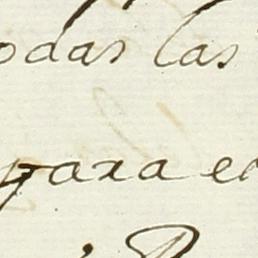 odas las
para e